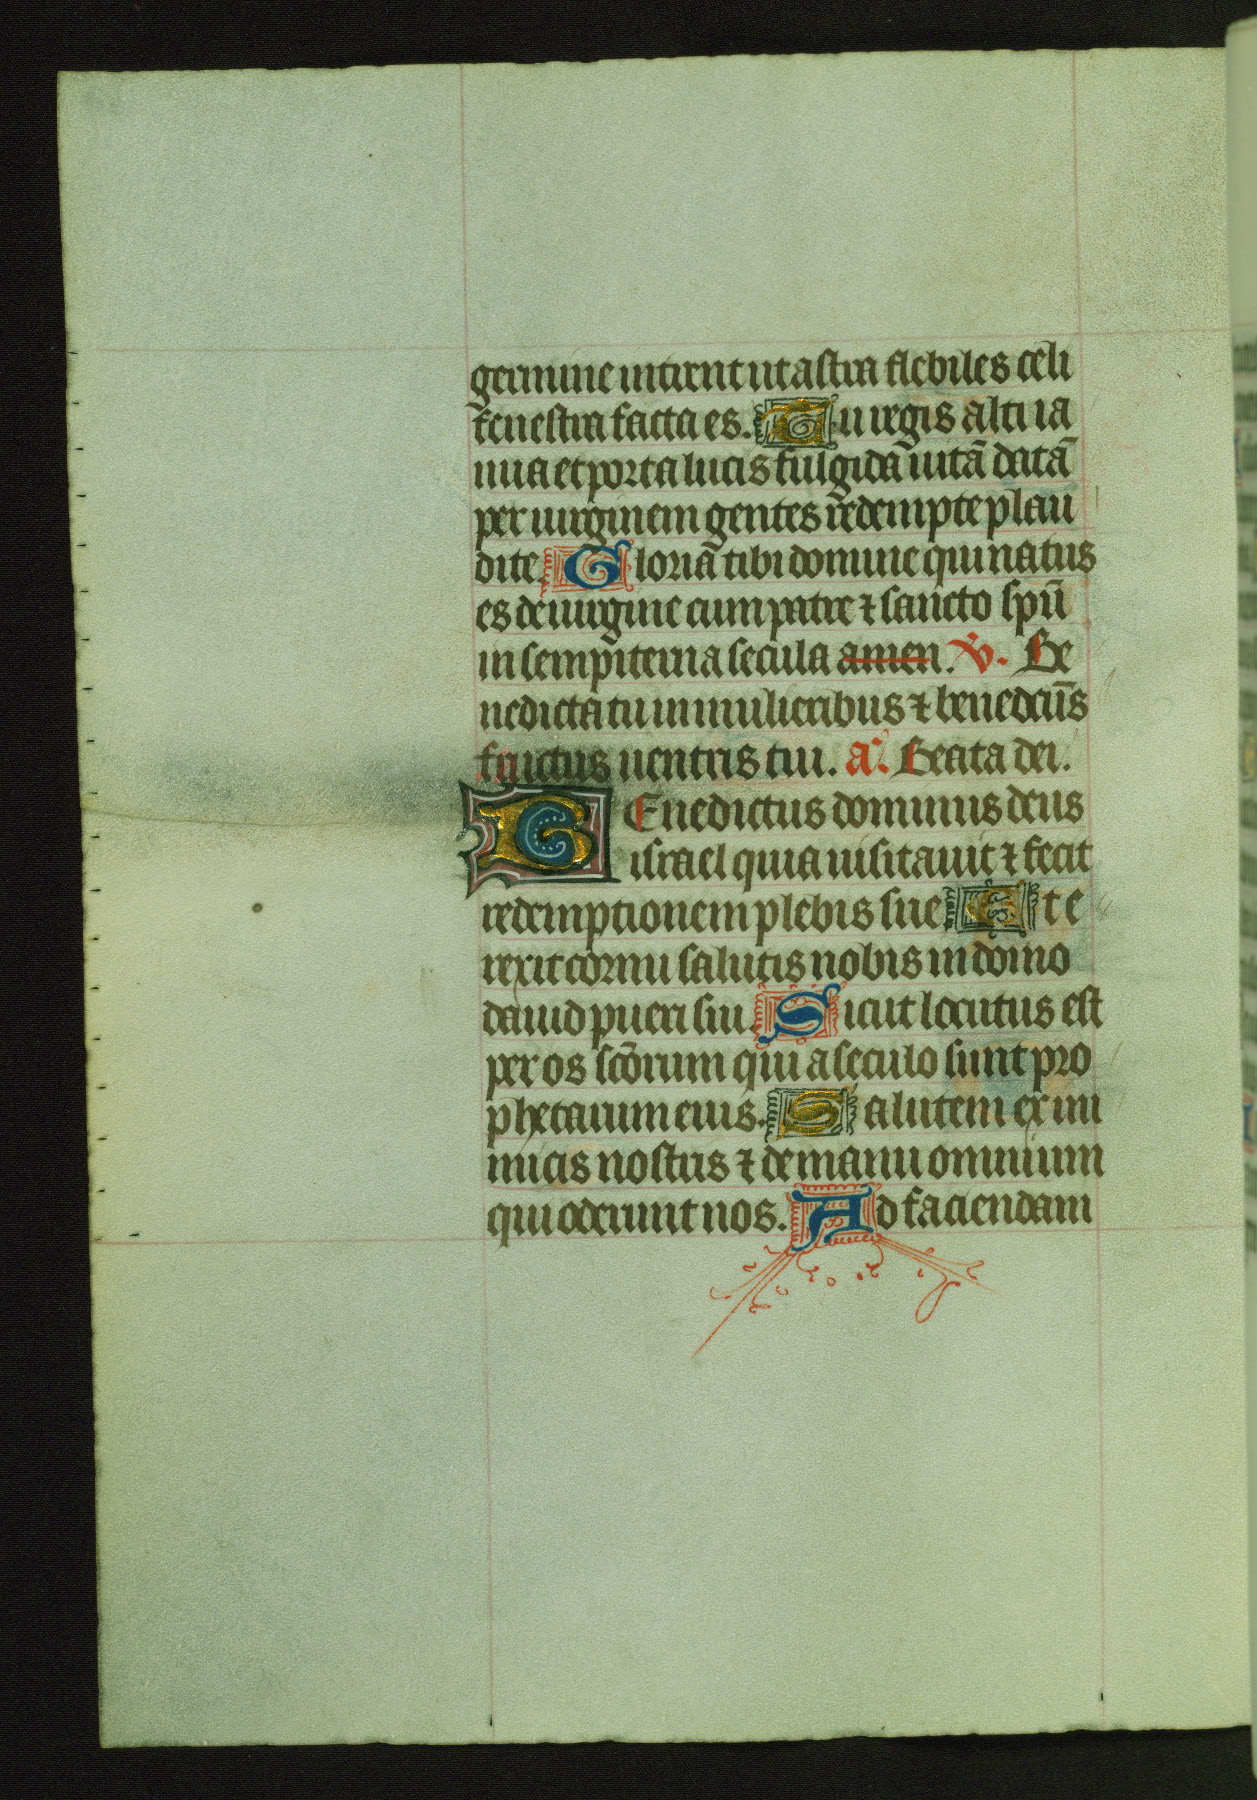 germine intrent ut astra flebiles celi
fenestra facta es. Tu regis alti ia
nua et porta lucis fulgida uitā datā
per uirginem gentes redempte plau
dite. Gloria tibi domine qui natus
es de uirgine cum patre ⁊ sancto spū
in sempiterna secula amen. v. Be
nedicta tu in mulieribus ⁊ benedcūs
fructus uentris tui. a. Beata dei.
BEnedictus dominus deus
israel quia uisitauit ⁊ fecit
redemptionem plebis sue Et e
rexit cornu salutis nobis in domo
dauid pueri sui. Sicut locutus est
per os scōrum qui a seculo sunt pro
phetarum eius. Salutem ex ini
micis nostris ⁊ de manu omnium
qui oderunt nos. Ad faciendam